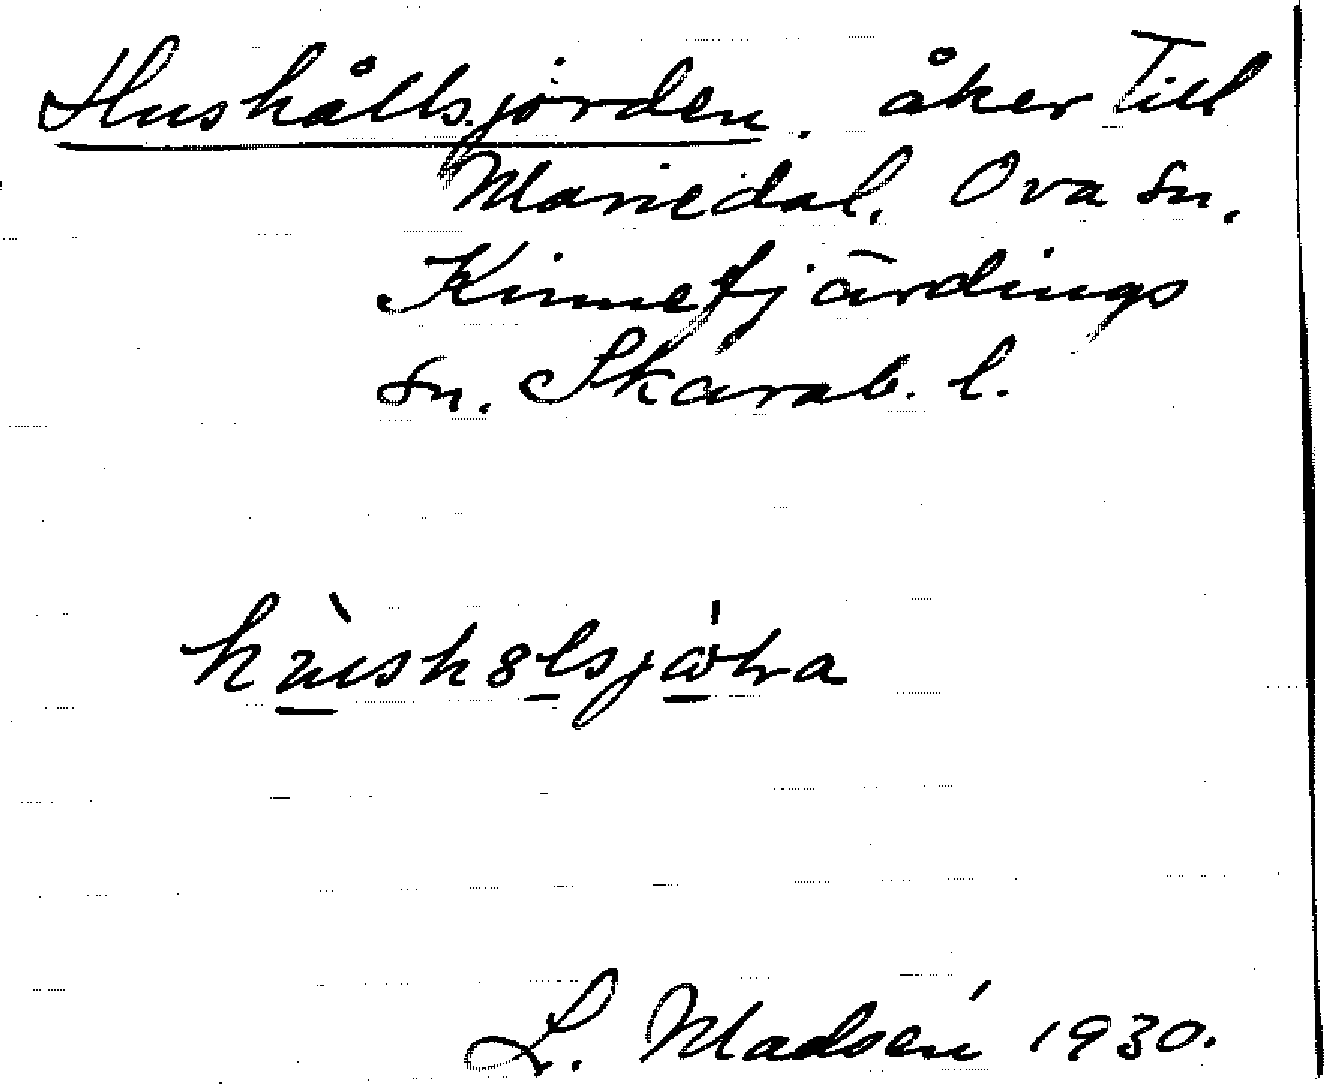 Hushållsjorden. åker till
Mariedal. Ova sn.
Kinnefjärdings
sn. Skarab. l.
L. Madsén 1930.